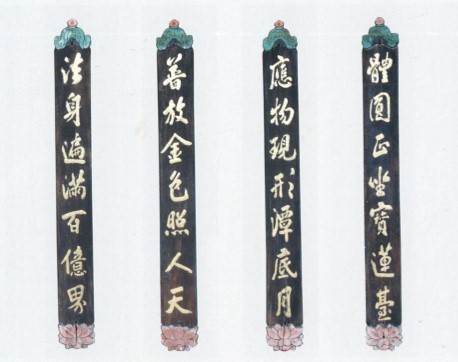 法身遍滿百億界
普放金色照人天
應物現形潭底月
體圓正坐寶蓮臺